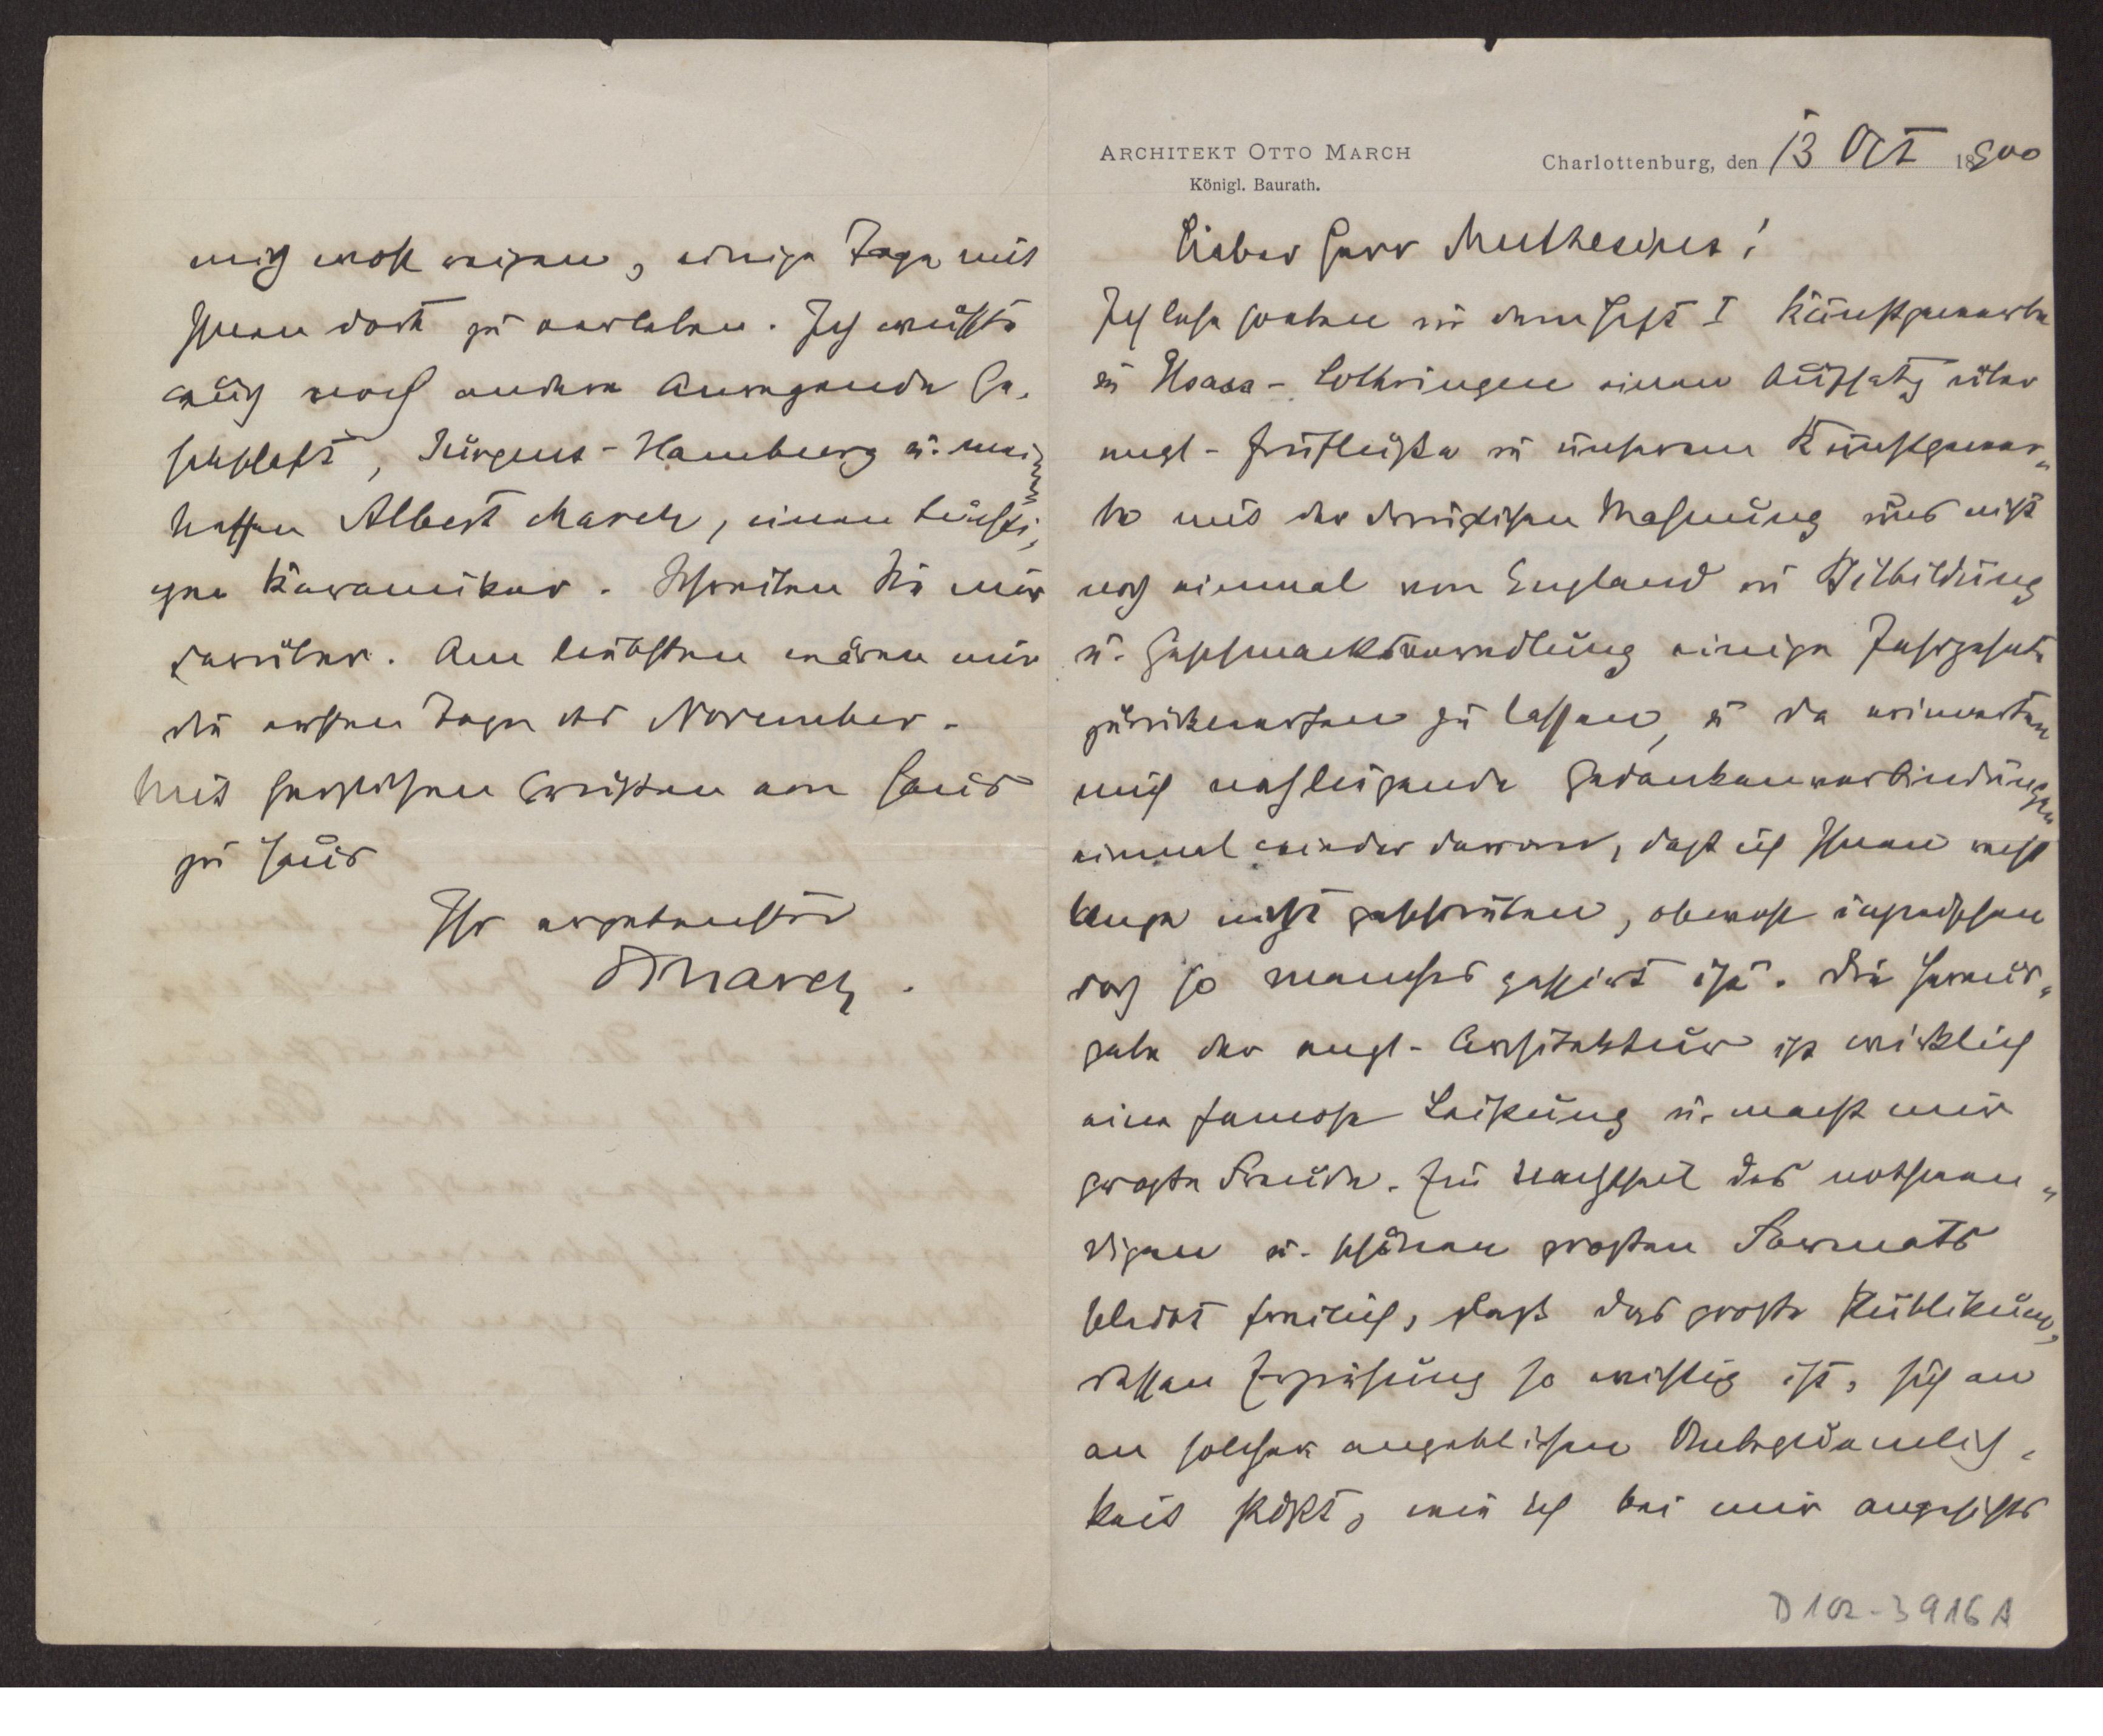 ARCHITEKT OTTO MARCH
Königl. Baurath.
Charlottenburg, den 13 Oct 1900
Lieber Herr Muthesius!
Ich lese soeben in dem Heft I Kunstgewerbe
in Elsass-Lothringen einen Aufsatz über
engl-Einflüsse in unserem Kunstgewer-
be mit der Mahnung uns nicht
noch einmal von England in Stilbildung
u. Geschmacksveredlung einige Jahrzehnte
zurückwerfen zu lassen, u da erinnerten
mich naheliegende Gedankenverbindungen
einmal wieder daran, daß ich Ihnen recht
lange nicht geschrieben, obwohl inzwischen
doch so manches passirt ist. Die Heraus-
gabe der engl-Architektur ist wirklich
eine famose Leistung u. macht mir
große Freude. Im Nachtheil des nothwen-
digen u. schönen großen Formats
bleibt freilich, daß das große Publikum,
dessen Erziehung so wichtig ist, sich an
an solcher angeblichen Unbequemlich-
keit stößt, wie ich bei mir angesichts
mich wohl reizen, einige Tage mit
Ihnen dort zu verleben. Ich wüßte
auch noch andere anregende Ge-
sellschaft, Jürgens-Hamburg u. mei
Neffen Albert March, einen tüchti-
gen Keramiker. Schreiben Sie mir
darüber. Am liebsten wären mir
die ersten Tage des November.
Mit herzlichen Grüßen von Haus
zu Haus
Ihr ergebenster
OMarch.
D102-3916A